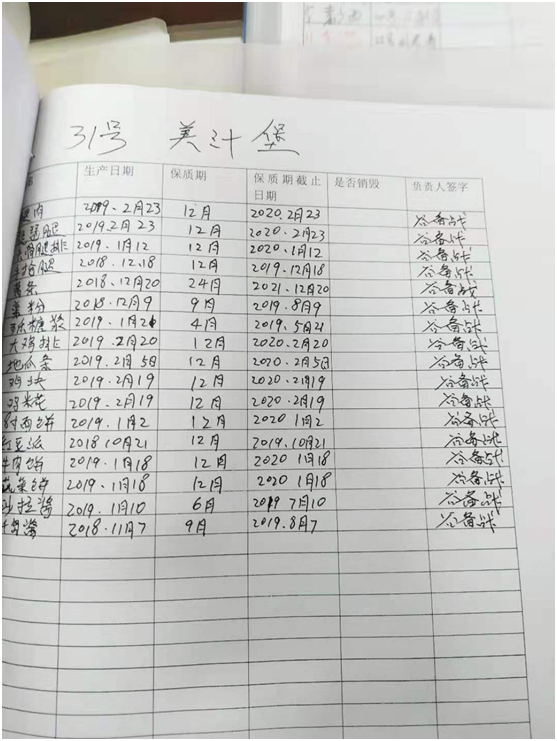 31号 美汁堡
生产日期 保质期 保质期截止日期 是否销毁 负责人签字
肉 2019.2月23 12月 2020.2月23 谷备战
腿 2019.2月23 12月 2020.2月23 谷备战
腿排 2019.1月12 12月 2020.1月12 谷备战
腿 2018.12.18 12月 2019.12月18 谷备战
薯条 2018.12月20 24月 2021.12月20 谷备战
粉 2018.12月9 9月 2019.8月9 谷备战
糖浆 2019.1月21 4月 2019.5月21 谷备战
大鸡排 2019.2月20 12月 2020.2月20 谷备战
地瓜条 2019.2月5日 12月 2020.2月5日 谷备战
鸡块 2019.2月19 12月 2020.2月19 谷备战
鸡米花 2019.2月19 12月 2020.2月19 谷备战
饼 2019.1月2 12月 2020 1月2 谷备战
红豆派 2018 10月21 12月 2019.10月21 谷备战
牛肉饼 2019.1月18 12月 2020 1月18 谷备战
蔬菜饼 2019.1月18 12月 2020 1月18 谷备战
沙拉酱 2019.1月10 6月 2019 7月10 谷备战
酱 2018.11月7 9月 2019.8月7 谷备战